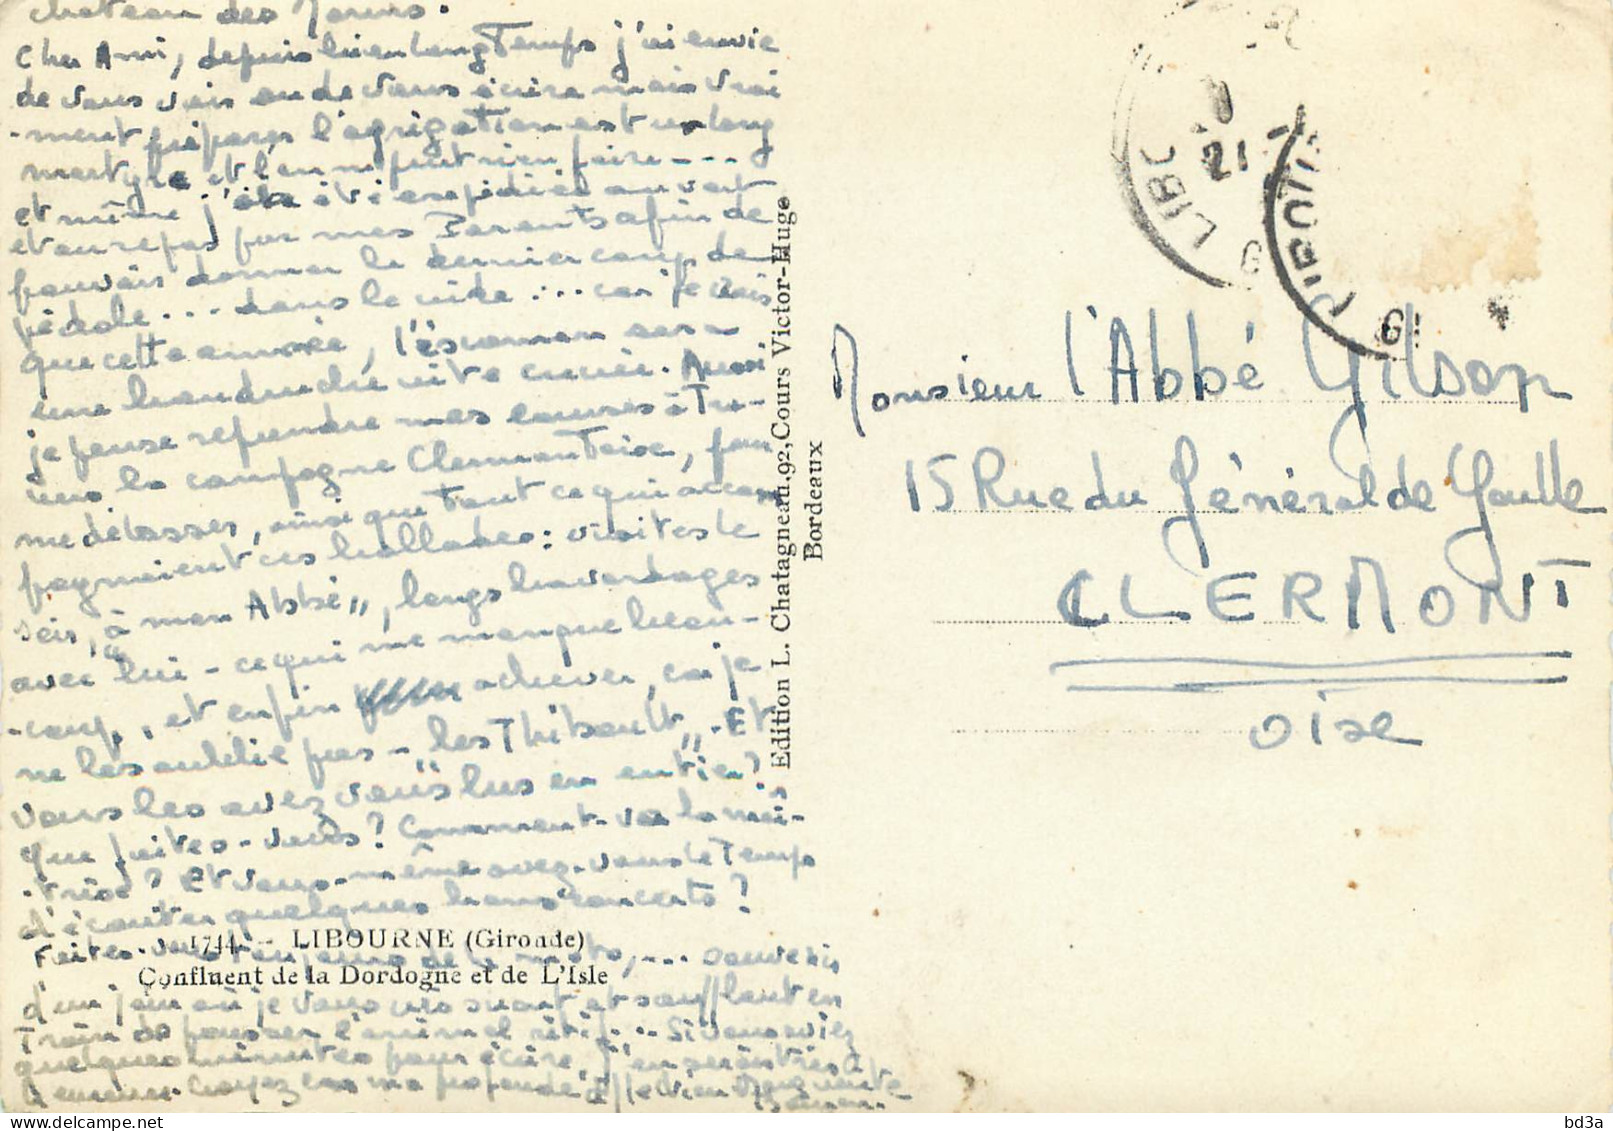 château des
Cher Ami, depuis bien longtemps j'ai envie
de vous voir ou de vous écrire mais vrai
-ment préparer l'agrégation est un long
martyre et l'on ne peut rien faire ...
et même j'ai été expédiée au vert
et au repos par mes Parents afin de
pouvoir donner le dernier coup de
pédale... dans le vide ... car je crois
que cette année, l'examen sera
une
je pense reprendre mes courses à tra-
vers la campagne Clermontoise, pour
me délasser, ainsi que tout ce qui accom
pagnaient ces ballades : visites le
soir, à "mon Abbé", longs bavardages
avec lui - ce qui me manque beau-
-coup, et enfin achever, car je
ne les oublie pas - "les Thibault". Et
vous les avez vous lus en entier?
que faites-vous? Comment va la maî-
-trise? Et vous-même avez-vous le temps
d'écouter quelques bons concerts?
Faites-vous toujours de la moto, ... souvenir
d'un jour où je vous vis suant et soufflant en
train de pousser l'animal rétif... Si vous aviez
quelques minutes pour écrire, j'en serais très
heureuse. Croyez en ma profonde affection
1744. - LIBOURNE (Gironde)
Confluent de la Dordogne et de L'Isle
Edition L. Chatagneau, 92, Cours Victor-Hugo
Bordeaux
LIBO
21
G
G
Monsieur l'Abbé Gilson
15 Rue du Général de Gaulle
CLERMONT
Oise
bd3a